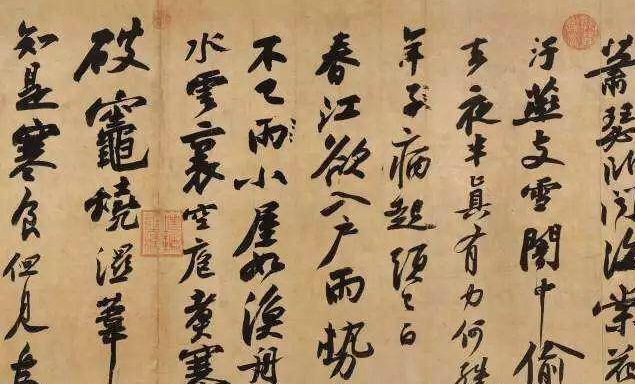 蕭瑟臥聞海棠花
汙燕支雪闇中偷
去夜半真有力何殊
年子病起頭已白
春江欲入戶雨勢
不已雨小屋如漁舟
水雲裏空庖煮寒
破竈燒濕葦
知是寒食但見烏